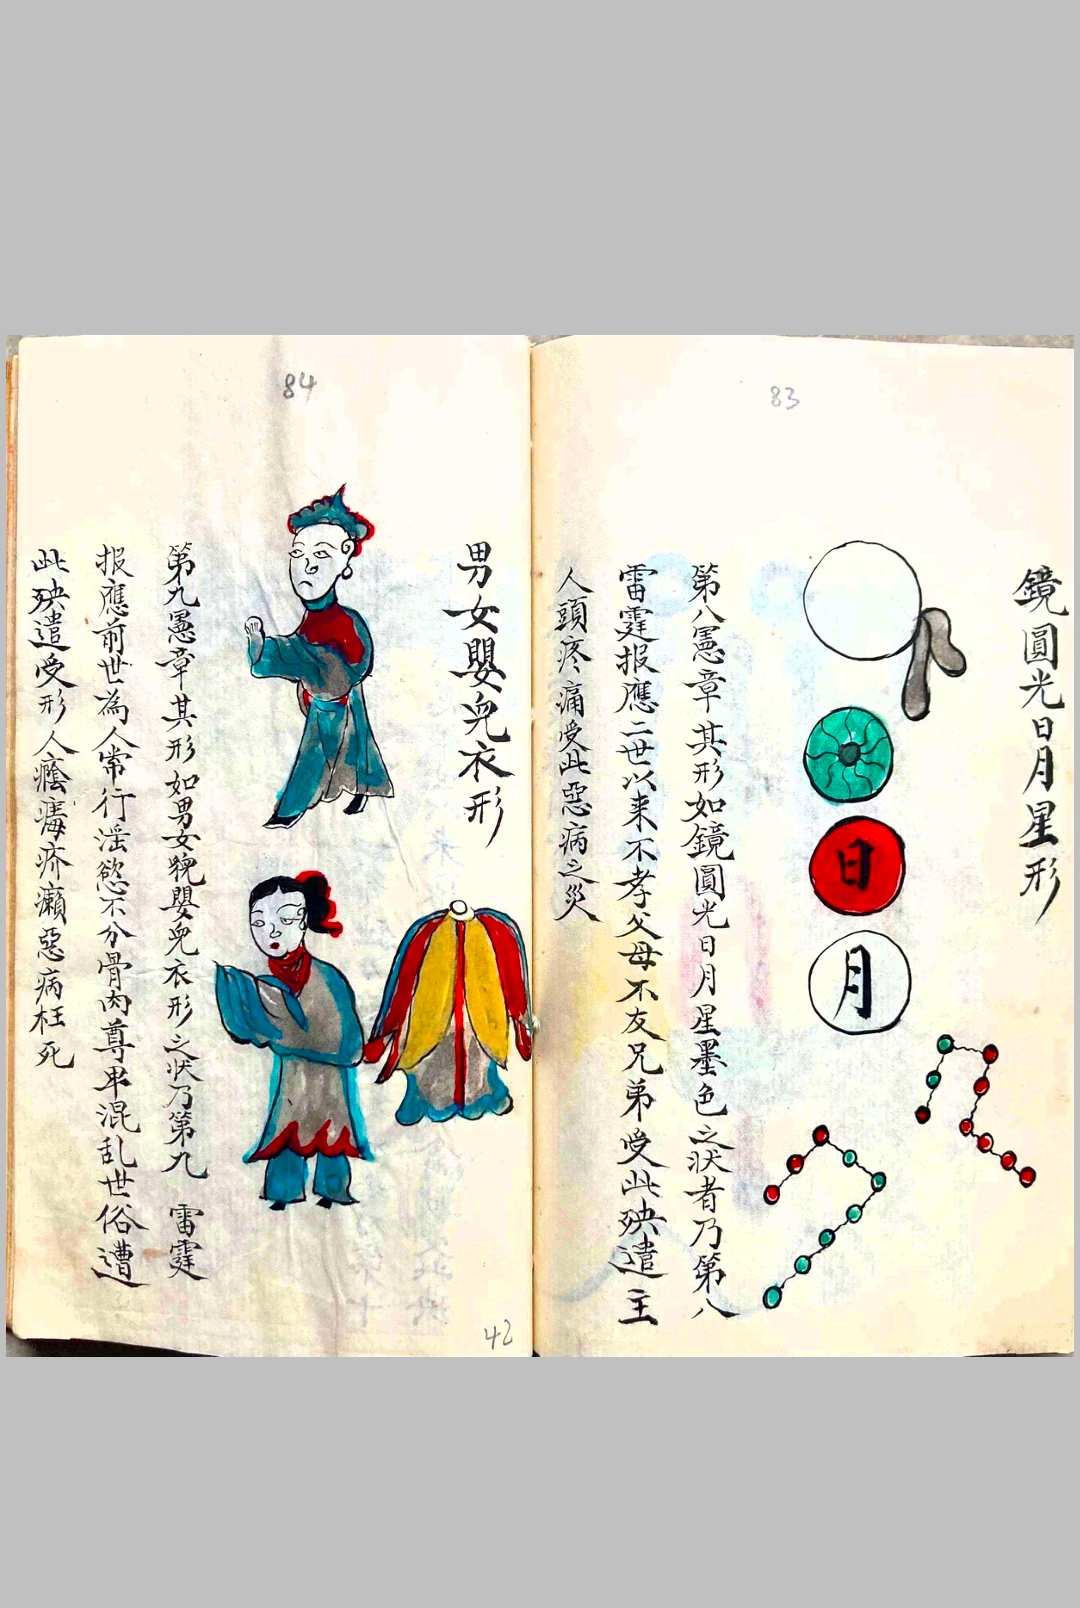 83
鏡圓光日月星形
日
月
第八憲章其形如鏡圓光日月星墨色之狀者乃第八
雷霆报應二世以来不孝父母不友兄弟受此殃遣主
人頭疼痛受此惡病之災
84
男女嬰兒衣形
第九憲章其形如男女貌嬰兒衣形之状乃第九 雷霆
报應前世為人常行滛慾不分骨肉尊卑混乱世俗遭
此殃遣受形人癊疥癩惡病枉死
42